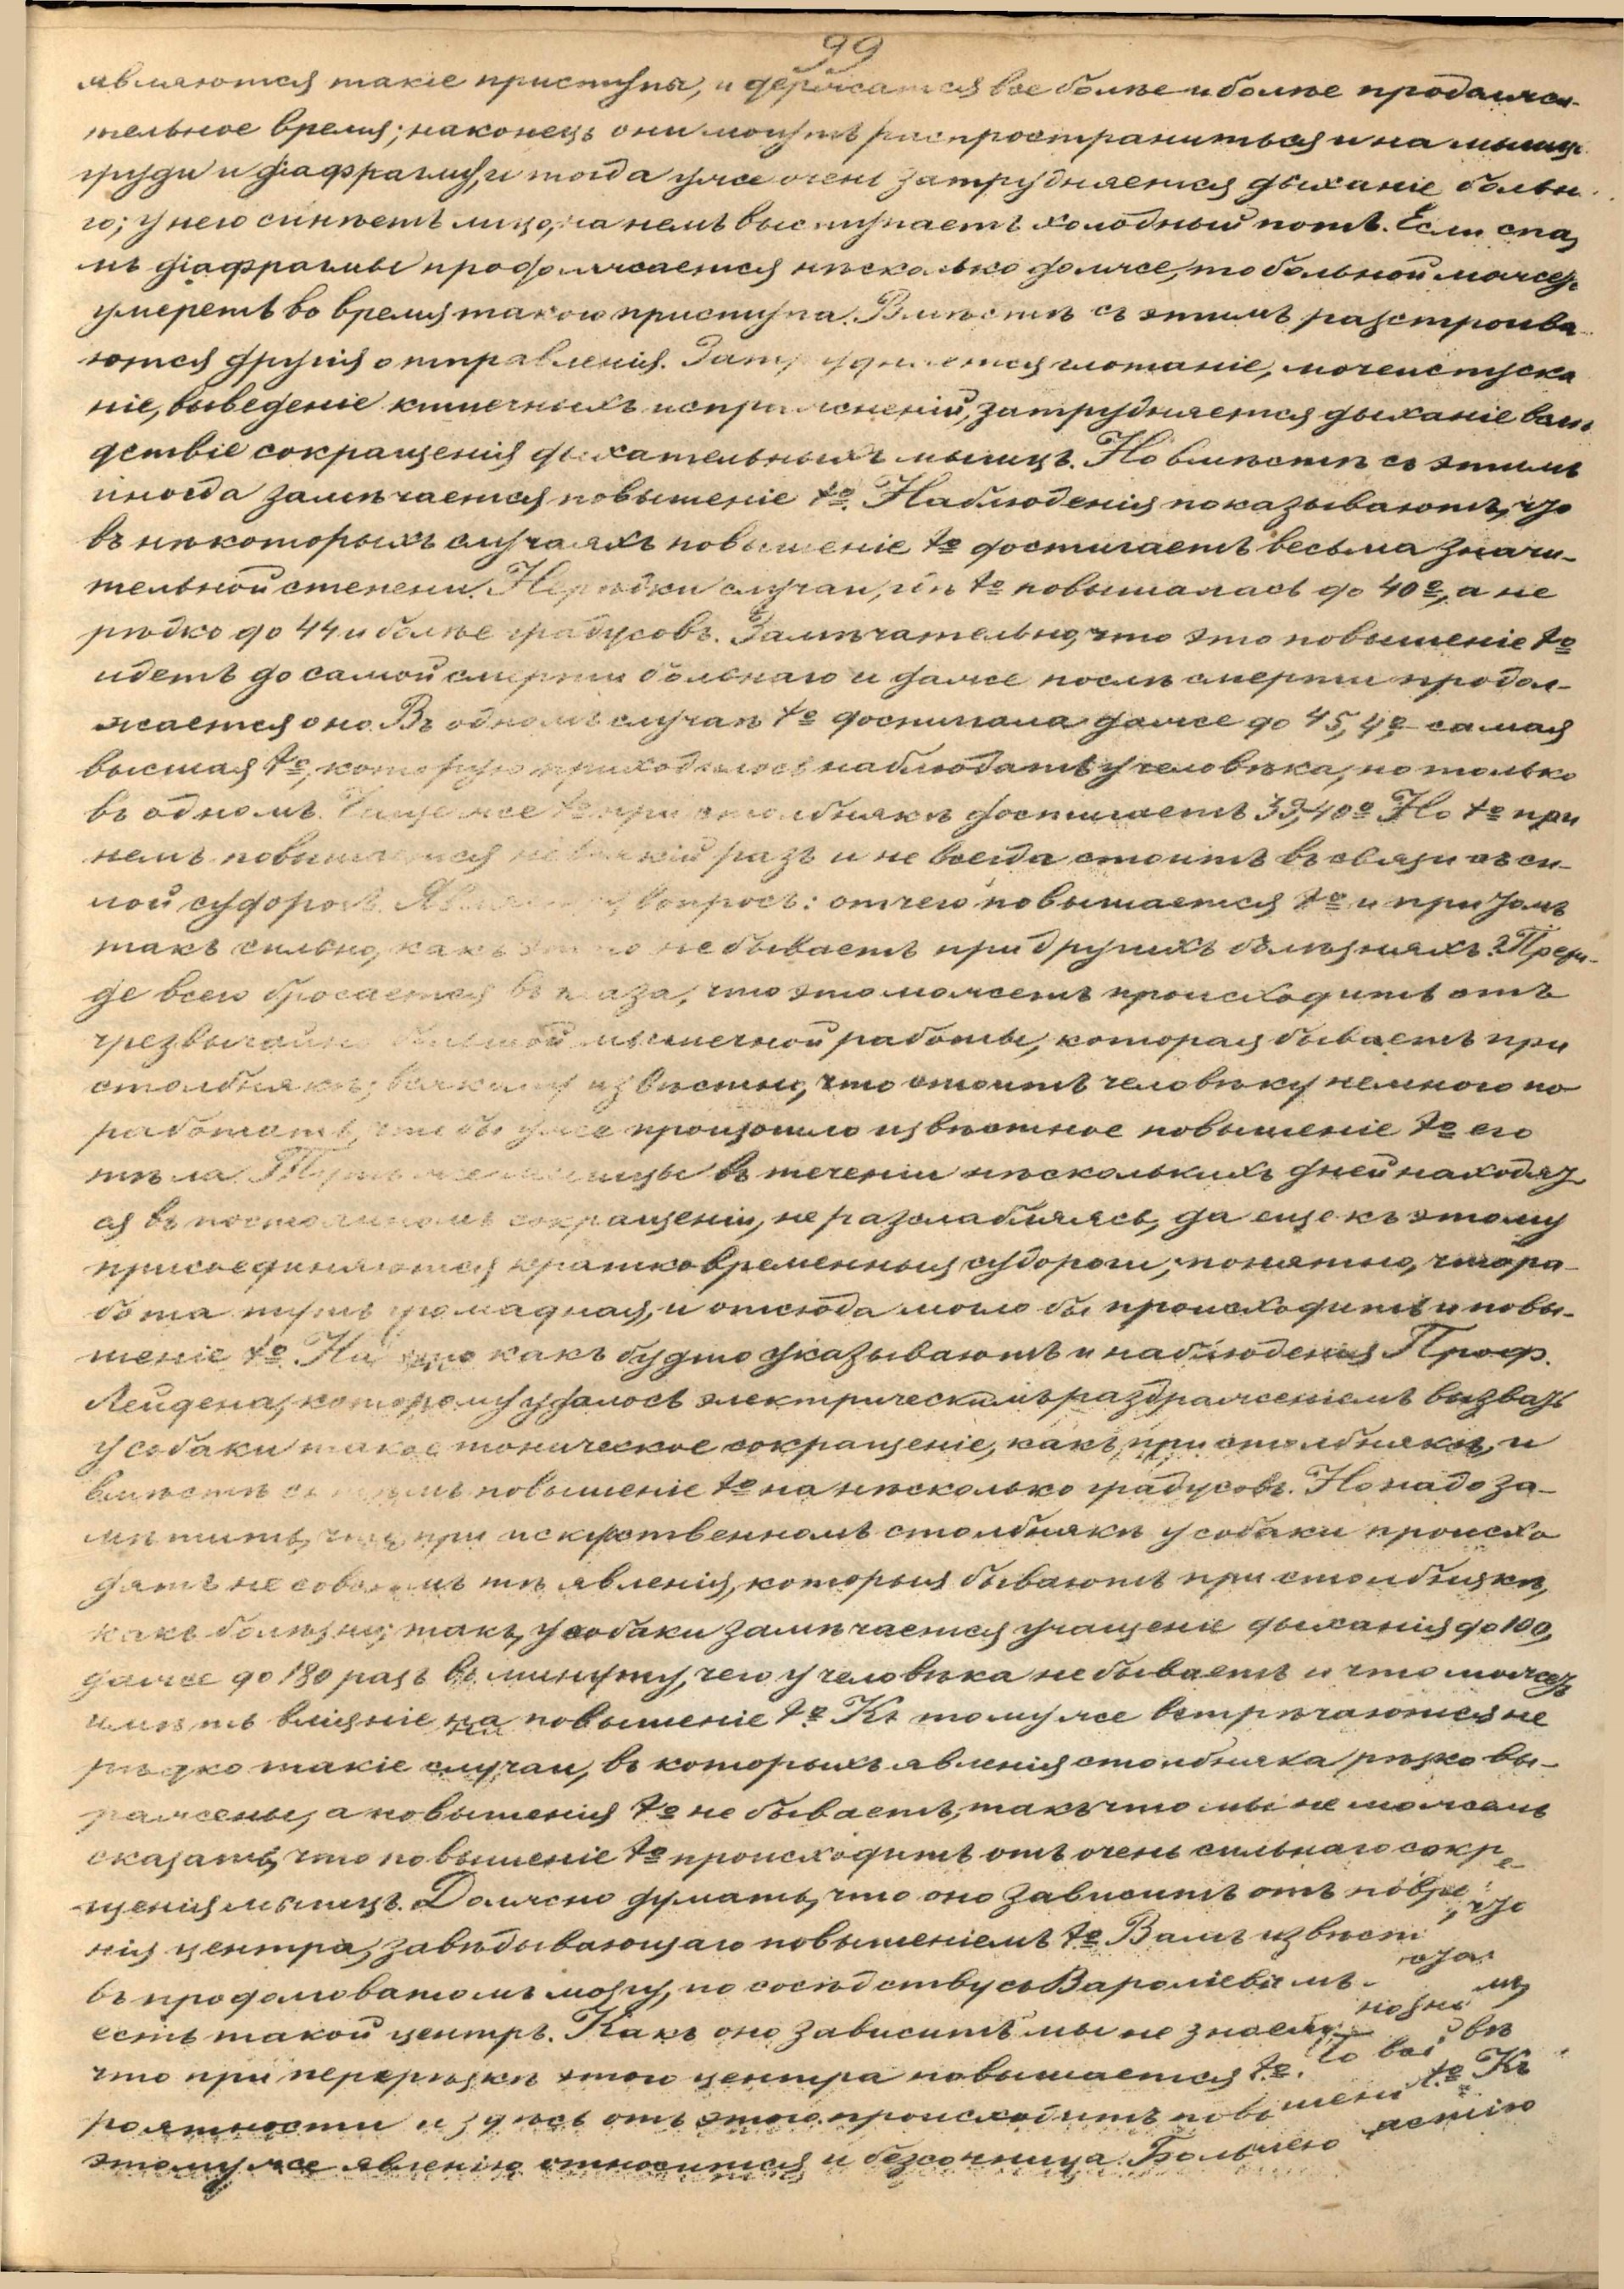 99
являются такіе приступы, и держатся все болѣе и болѣе продолжи-
тельное время; наконецъ они могутъ распространиться и на мышцы
груди и діафрагму, и тогда уже очень затрудняется дыханіе больн
го; у него синѣетъ лицо, на немъ выступаетъ холодный потъ. Если спаз
мъ діафрагмы продолжается нѣсколько долже, то больной может
умереть во время такого приступа. Вмѣстѣ съ этимъ разстроива-
ются другія отправленія. Затрудняется глотаніе, мочеиспуска
ніе, выведеніе кишечныхъ испражненій, затрудняется дыханіе вслѣ
дствіе сокращенія дыхательныхъ мышцъ. Но вмѣстѣ съ этимъ
иногда замѣчается повышеніе tº. Наблюденія показываютъ, что
въ нѣкоторыхъ случаяхъ повышеніе tº достигаетъ весьма значи-
тельной степени. Нерѣдки случаи, гдѣ tº повышалась до 40º, а не
рѣдко до 44 и болѣе градусовъ. Замѣчательно, что это повышеніе tº
идетъ до самой смерти больнаго и даже послѣ смерти продол-
жается оно. Въ одномъ случаѣ tº достигала даже до 45,4º самая
высшая tº, которую приходилось наблюдать у человѣка, но только
въ одномъ. Чаще же tº при столбнякѣ достигаетъ 39,40º Но tº при
немъ повышается не всякій разъ и не всегда стоитъ въ связи съ си-
лой судорогъ. Является вопросъ: отчего повышается tº и при томъ
такъ сильно, какъ этого не бываетъ при другихъ болѣзняхъ? Преж-
де всего бросается въ глаза, что это можетъ происходить отъ
чрезвычайно большой мышечной работы, которая бываетъ при
столбнякѣ; всякому извѣстно, что стоитъ человѣку немного по
работать, чтобы уже произошло извѣстное повышеніе tº его
тѣла. Тутъ же мышцы въ теченіи нѣсколькихъ дней находят
ся въ постоянномъ сокращеніи, не разслабляясь, да еще къ этому
присоединяются кратковременныя судороги; понятно, что ра-
бота тутъ громадная, и отсюда могло бы происходить и повы-
шеніе tº. На это какъ будто указываютъ и наблюденія Проф.
Лейдена, которому удалось электрическимъ раздраженіемъ вызвать
у собаки такое тоническое сокращеніе, какъ при столбнякѣ, и
вмѣстѣ съ этимъ повышеніе tº на нѣсколько градусовъ. Но надо за-
мѣтить, что при искуственномъ столбнякѣ у собаки происхо
дятъ не совсѣмъ тѣ явленія, которыя бываютъ при столбнякѣ,
какъ болѣзни; такъ, у собаки замѣчается учащеніе дыханія до 100,
даже до 180 разъ въ минуту, чего у человѣка не бываетъ и что может
имѣть вліяніе на повышеніе tº. Къ тому же встрѣчаются не
рѣдко такіе случаи, въ которыхъ явленія столбняка рѣзко вы-
ражены, а повышенія tº не бываетъ, такъ что мы не можемъ
сказать, что повышеніе tº происходитъ отъ очень сильнаго сокра
щенія мышцъ. Должно думать, что оно зависитъ отъ повре
нія центра, завѣдывающаго повышеніемъ tº. Вамъ извѣстн что
въ продолговатомъ мозгу, по сосѣдству съ Вароліевымъ
есть такой центръ. Какъ оно зависитъ мы не знаемъ
что при перерѣзкѣ этого центра повышается tº. По всей вѣ
роятности и здѣсь отъ этого происходитъ повышеніе tº. Къ
этому же явленію относится и безсонница. Большею частію